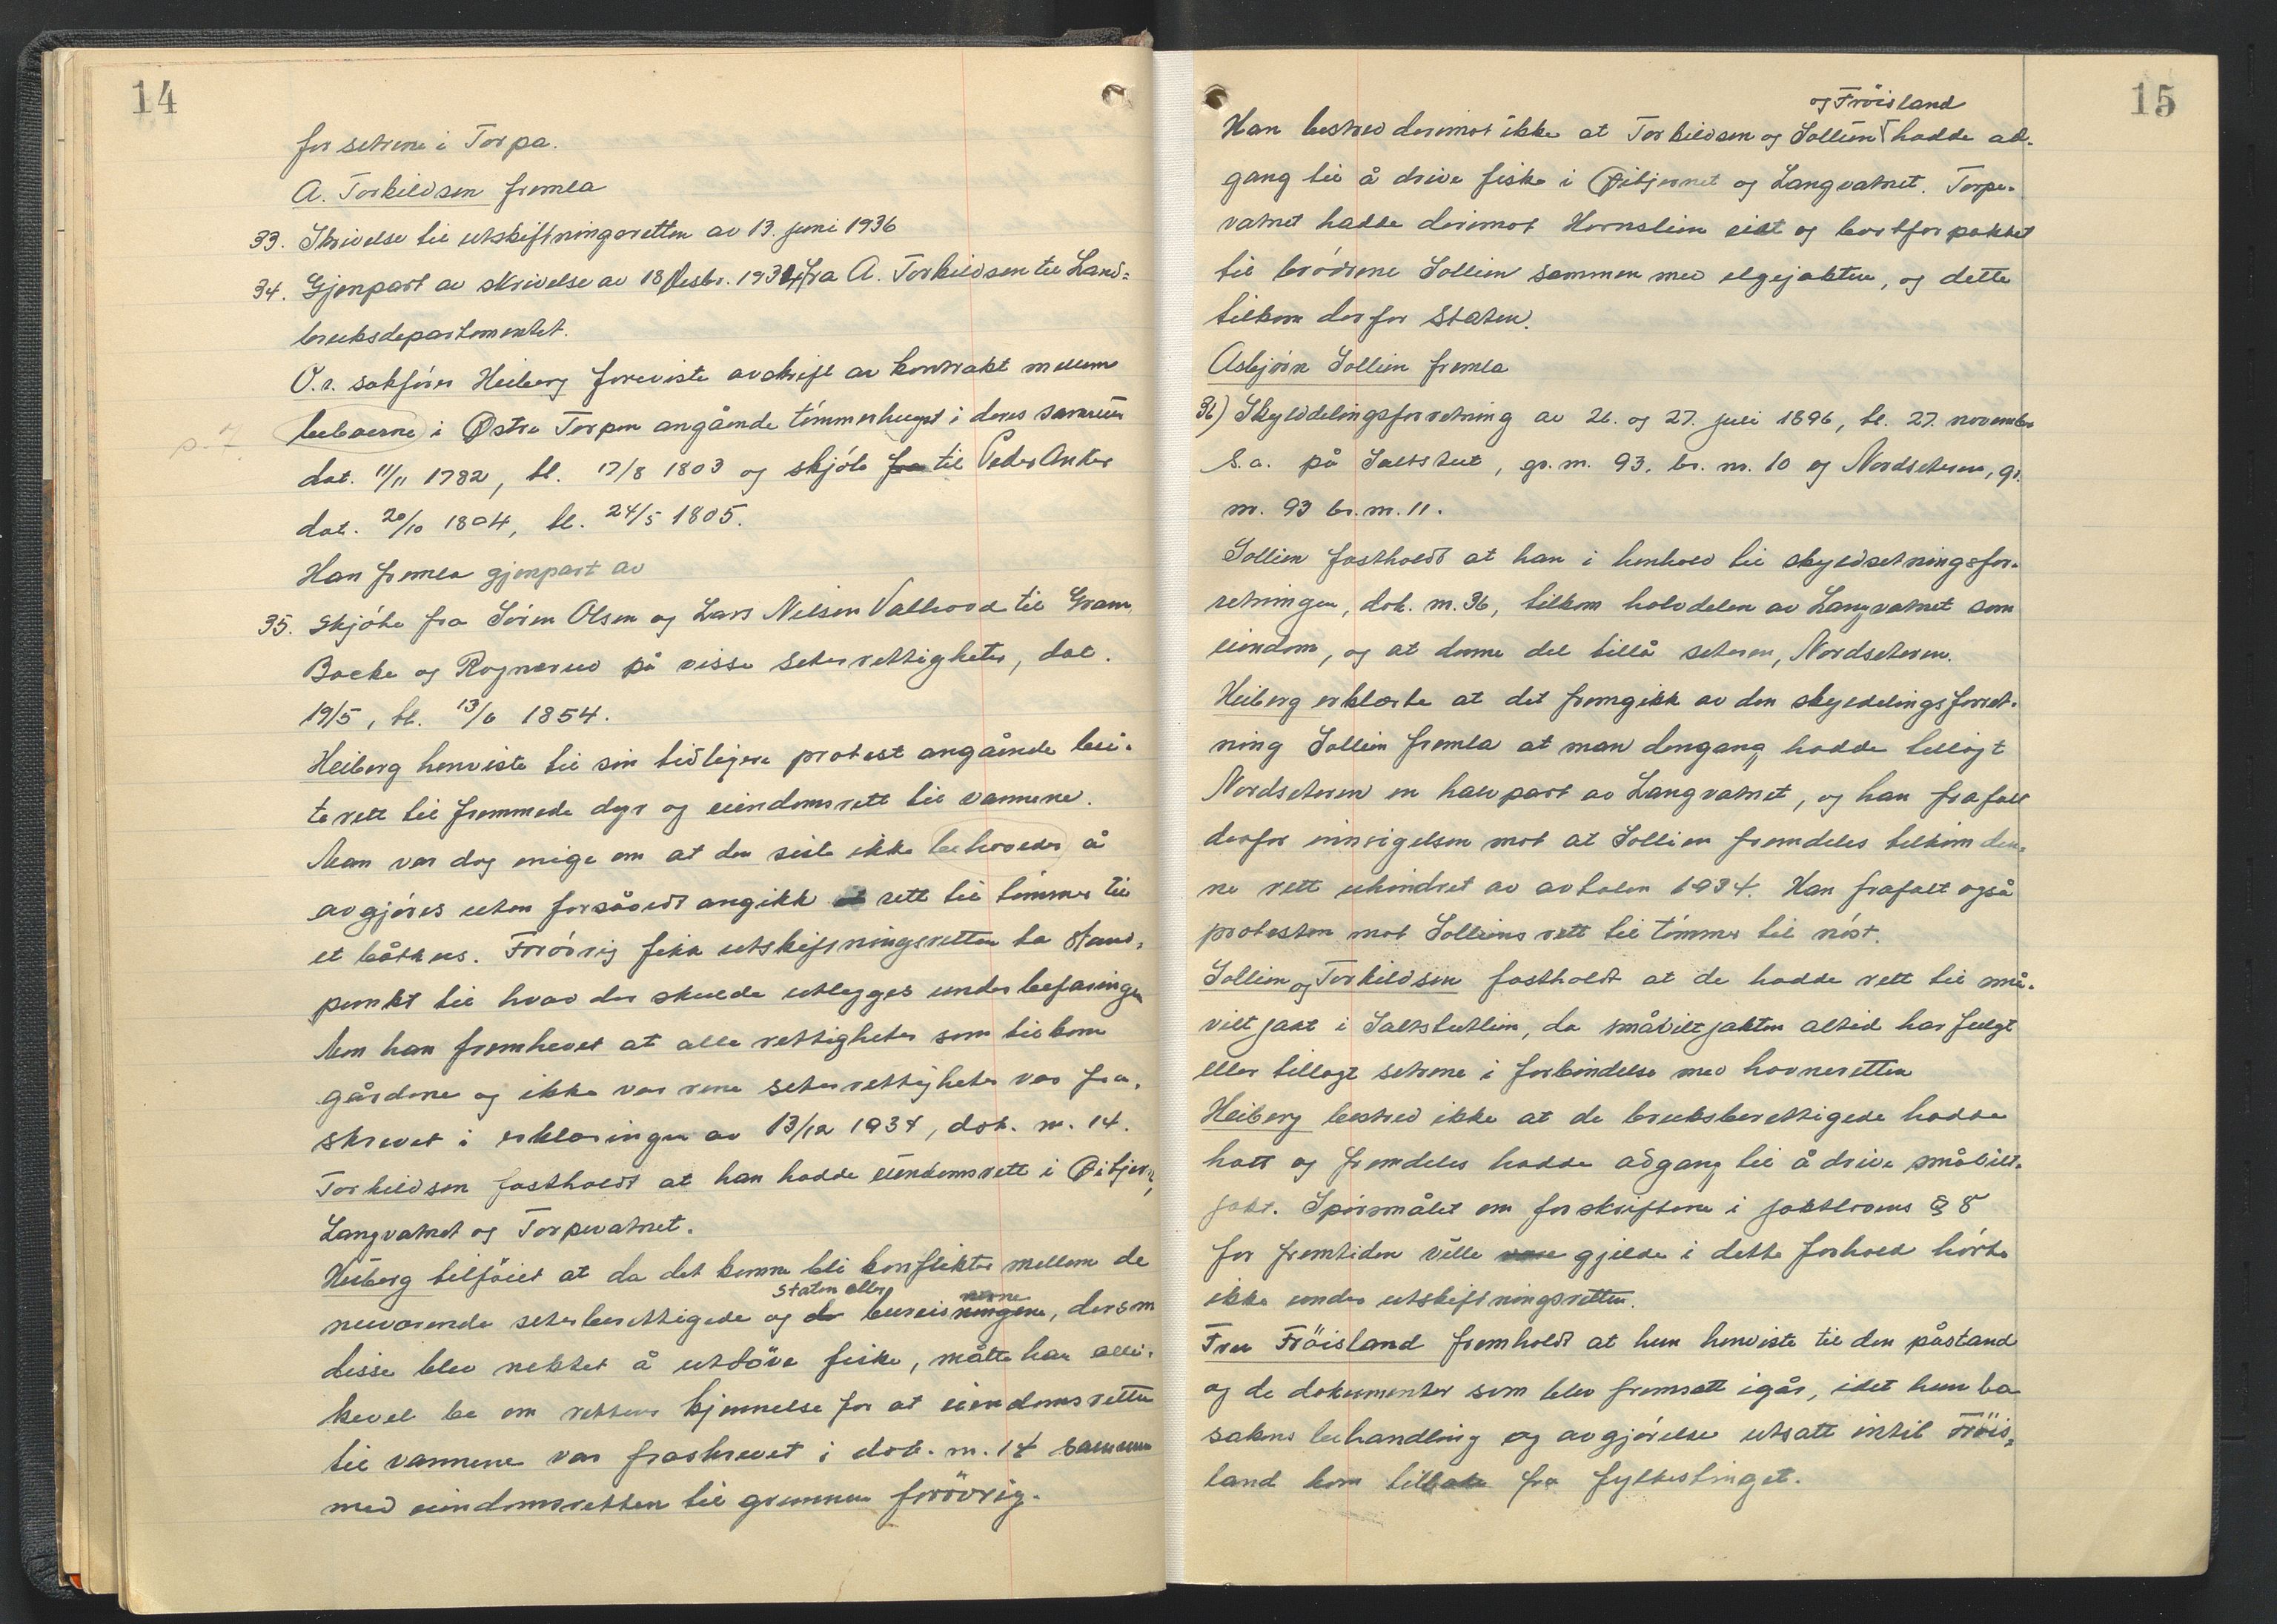 14
for setrene i Torpa.
A. Torkildsen fremla
33. Skrivelse til utskiftningsretten av 13. juni 1936
34. Gjenpart av skrivelse av 18 desbr. 1934 fra A. Torkildsen til Land-
bruksdepartementet.
O.r. sakfører Heiberg foreviste avskrift av kontrakt mellem
beboerne i Østre Torpen angående tømmerhugst i deres sameie
dat. 11/11 1782, tl. 17/8 1803 og skjøte fra til Peder Anker
dat. 20/10 1804, tl. 24/5 1805.
Han fremla gjenpart av
35. Skjøte fra Søren Olsen og Lars Nilsen Valbrod til Gram,
Bocke og Rognerud på visse seterrettigheter, dat.
19/5, tl. 13/6 1854.
Heiberg henviste til sin tidligere protest angående bei-
terett til fremmede dyr og eiendomsrett til vannene.
Man var dog enige om at den siste ikke behøvedes å
avgjøres uten forsåvidt angikk rett til tømmer til
et båthus. Forøvrig fikk utskiftningsretten ta stand-
punkt til hvad der skulde utlegges under befaringen
Men han fremhevet at alle rettigheter som tilkom
gårdene og ikke var rene seterrettigheter var fra-
skrevet i erklæringen av 13/12 1934, dok. nr. 14.
Torkildsen fastholdt at han hadde eiendomsrett i Øitjern,
Langvatnet og Torpevatnet.
Heiberg tilføiet at da det kunne bli konflikter mellem de
Staten eller nerne
nuværende seterberettigede og de bureisningene, dersom
disse blev nektet å utdøve fiske, måtte han alli-
kevel be om rettens kjennelse for at eiendomsretten
til vannene var fraskrevet i dok. nr. 14 sammen
med eiendomsretten til grunnen forøvrig.
15
og Frøisland
Han bestred derimot ikke at Torkildsen og Sollien hadde ad-
gang til å drive fiske i Øitjernet og Langvatnet. Torpe-
vatnet hadde derimot Hornslien eiet og bortforpaktet
til brødrene Sollien sammen med elgejakten, og dette
tilkom derfor Staten.
Asbjørn Sollien fremla
36) Skylddelingsforretning av 26. og 27. juli 1896, tl. 27. november
s.a. på Saltstut, gr. nr. 93, br. nr. 10 og Nordseteren, gr.
nr. 93 br. nr. 11.
Sollien fastholdt at han i henhold til skyldsetningsfor-
retningen, dok. nr. 36, tilkom halvdelen av Langvatnet som
eiendom, og at denne del tillå seteren, Nordseteren.
Heiberg erklærte at det fremgikk av den skylddelingsforret-
ning Sollien fremla at man dengang hadde tillagt
Nordseteren en halvpart av Langvatnet, og han frafalt
derfor innsigelsen mot at Sollien fremdeles tilkom den-
ne rett uhindret av avtalen 1934. Han frafalt også
protesten mot Solliens rett til tømmer til nøst.
Sollien og Torkildsen fastholdt at de hadde rett til små-
viltjakt i Saltstutlien, da småviltjakten altid har fulgt
eller tillagt setrene i forbindelse med havneretten
Heiberg bestred ikke at de bruksberettigede hadde
hatt og fremdeles hadde adgang til å drive småvilt-
jakt. Spørsmålet om forskriftene i jaktlovens § 8
for fremtiden ville være gjelde i dette forhold hørte
ikke under utskiftningsretten.
Fru Frøisland fremholdt at hun henviste til den påstand
og de dokumenter som blev fremsatt igår, idet hun ba
sakens behandling og avgjørelse utsatt inntil Frøis-
land kom tilbake fra fylkestinget.